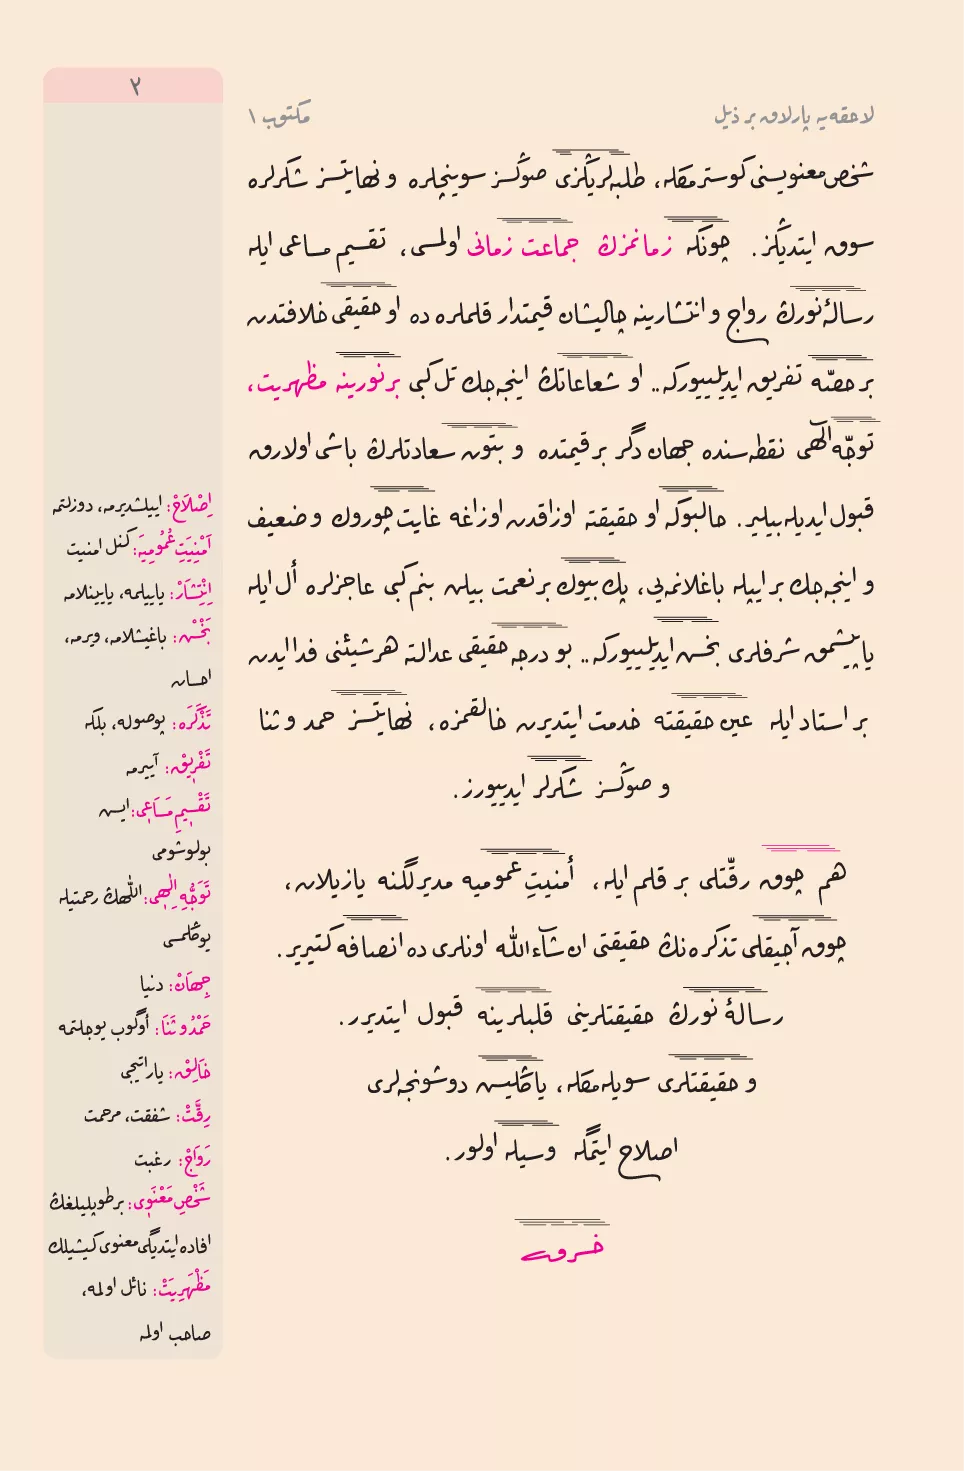 ٢
لاحقه‌يه پارلاق بر ذيل
مكتوب ١
شخص معنويسنى كوسترمكله، طلبه‌لريڭزى صوڭسز سوينچلره و نهايتسز شكرلره
سوق ايتديڭز. چونكه زمانمزڭ جماعت زمانى اولمسى، تقسيم مساعى ايله
رسالۀ نورڭ رواج و انتشارينه چاليشان قيمتدار قلملره ده او حقيقى خلافتدن
بر حصّه تفريق ايديلييوركه.. او شعاعاتڭ اينجه‌جك تل كبى بر نورينه مظهريت،
توجّه الٰهى نقطه‌سنده جهان دگر بر قيمتده و بتون سعادتلرڭ باشى اولارق
قبول ايديله‌بيلير. حالبوكه او حقيقته اوزاقدن اوزاغه غايت چوروك و ضعيف
و اينجه‌جك بر ايپله باغلانمه‌يى، پك بيوك بر نعمت بيلن بنم كبى عاجزلره أل ايله
ياپيشمق شرفلرى بخس ايديلييوركه.. بو درجه حقيقى عدالته هر شيئنى فدا ايدن
بر استاد ايله عين حقيقته خدمت ايتديرن خالقمزه، نهايتسز حمد و ثنا
و صوڭسز شكرلر ايدييورز.
هم چوق رقّتلى بر قلم ايله، أمنيتِ عموميه مديرلگنه يازيلان،
چوق آجيقلى تذكره‌نڭ حقيقتى ان شآء اللّٰه اونلرى ده انصافه كتيرير.
رسالۀ نورڭ حقيقتلرينى قلبلرينه قبول ايتديرر.
و حقيقتلرى سويله‌مكله، ياڭليش دوشونجه‌لرى
اصلاح ايتمگه وسيله اولور.
خسرو
اِصْلَاحْ: اييلشديرمه، دوزلتمه
اَمْنِيَتِ عُمُومِيَه: كنل امنيت
اِنْتِشَارْ: ياييلمه، يايينلامه
بَخْسْ: باغيشلامه، ويرمه،
احسان
تَذْكَرَه: پوصوله، بلگه
تَفْرِيقْ: آييرمه
تَقْسِيمِ مَسَاعِى: ايش
بولوشومى
تَوَجُّهِ اِلٰهِى: اللّٰهڭ رحمتيله
يوڭلمسى
جِهَانْ: دنيا
حَمْدُ و ثَنَا: أوگوب يوجلتمه
خَالِقْ: ياراتيجى
رِقَّتْ: شفقت، مرحمت
رَوَاجْ: رغبت
شَخْصِ مَعْنَوِى: بر طوپليلغڭ
افاده ايتديگى معنوى كيشيلك
مَظْهَرِيَتْ: نائل اولمه،
صاحب اولمه